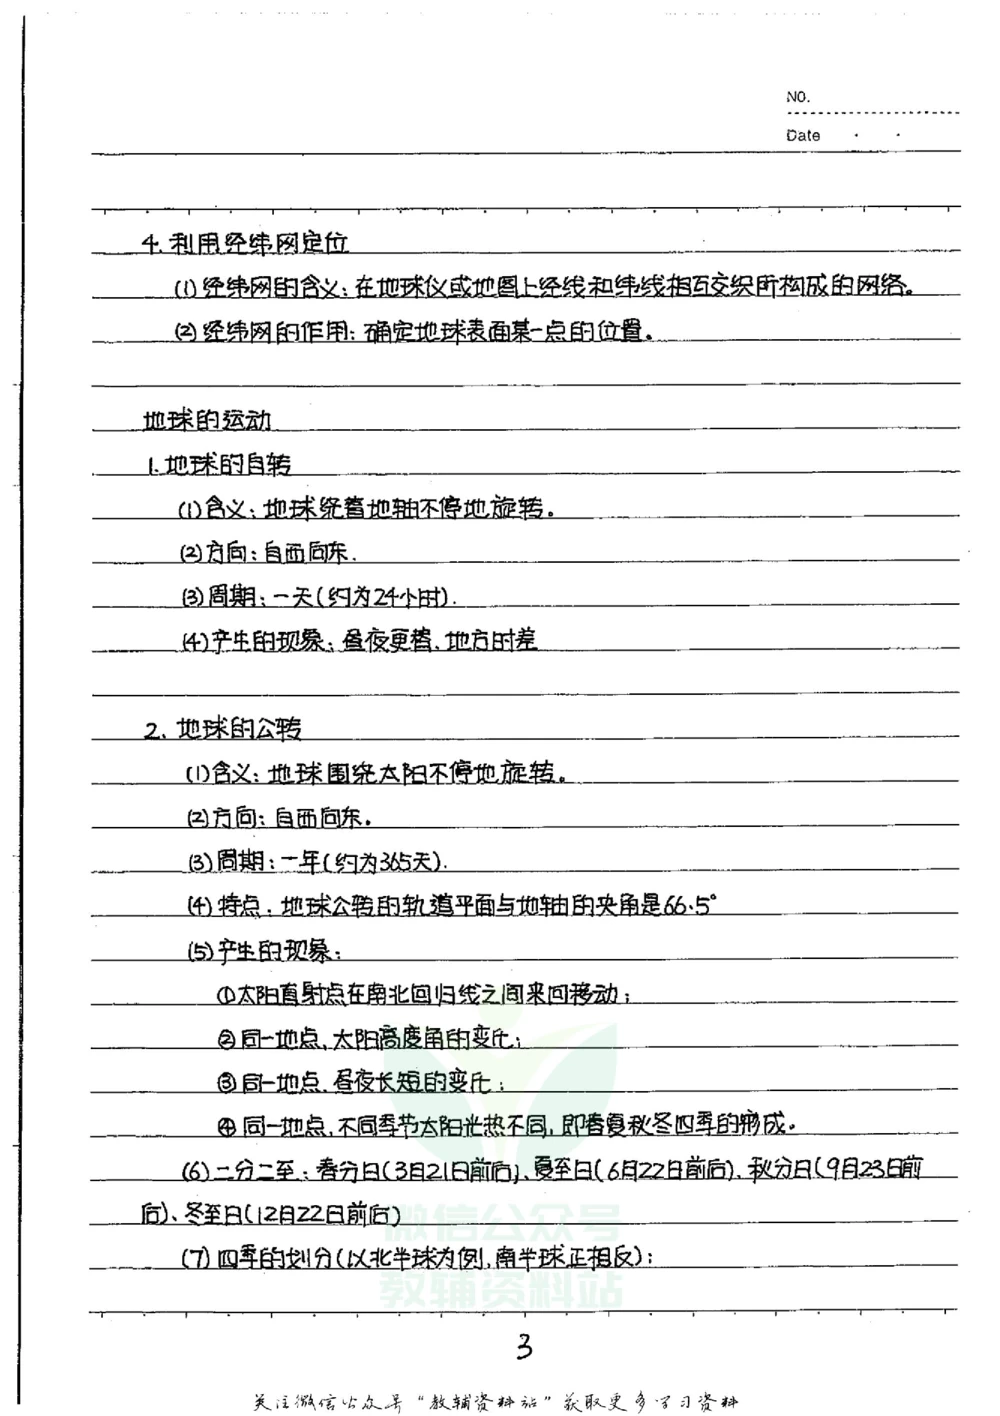 NO.
Date
4. 利用经纬网定位
(1) 经纬网的含义: 在地球仪或地图上经线和纬线相互交织所构成的网络。
(2) 经纬网的作用: 确定地球表面某一点的位置。
地球的运动
1. 地球的自转
(1) 含义: 地球绕着地轴不停地旋转。
(2) 方向: 自西向东.
(3) 周期: 一天(约为24小时).
(4) 产生的现象: 昼夜更替、地方时差
2. 地球的公转
(1) 含义: 地球围绕太阳不停地旋转。
(2) 方向: 自西向东。
(3) 周期: 一年(约为365天).
(4) 特点: 地球公转的轨道平面与地轴的夹角是66.5°
(5) 产生的现象:
①太阳直射点在南北回归线之间来回移动;
②同一地点, 太阳高度角的变化;
③同一地点, 昼夜长短的变化;
④同一地点, 不同季节太阳光热不同, 即春夏秋冬四季的形成。
(6) 二分二至: 春分日(3月21日前后)、夏至日(6月22日前后)、秋分日(9月23日前
后)、冬至日(12月22日前后)
微信公众号
(7) 四季的划分(以北半球为例, 南半球正相反):
教辅资料站
3
关注微信公众号“教辅资料站”获取更多学习资料